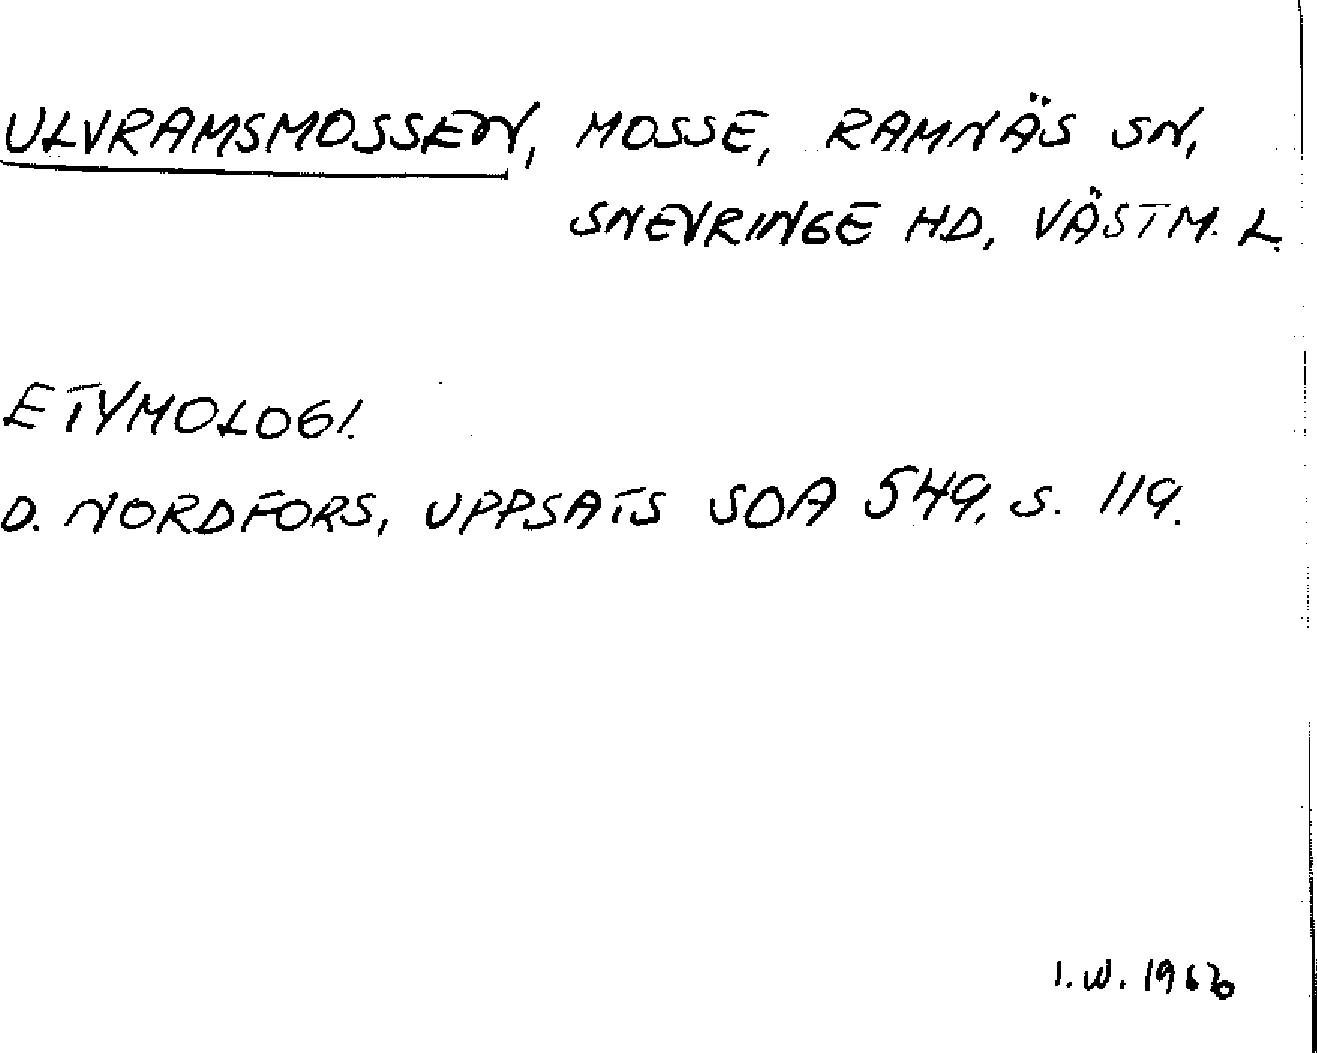 ULVRAMSMOSSEN, MOSSE, RAMNÄS SN,
SNEVRINGE HD, VÄSTM. L.
ETYMOLOGI.
D. NORDFORS, UPPSATS SOA 549, S. 119.
I.W.